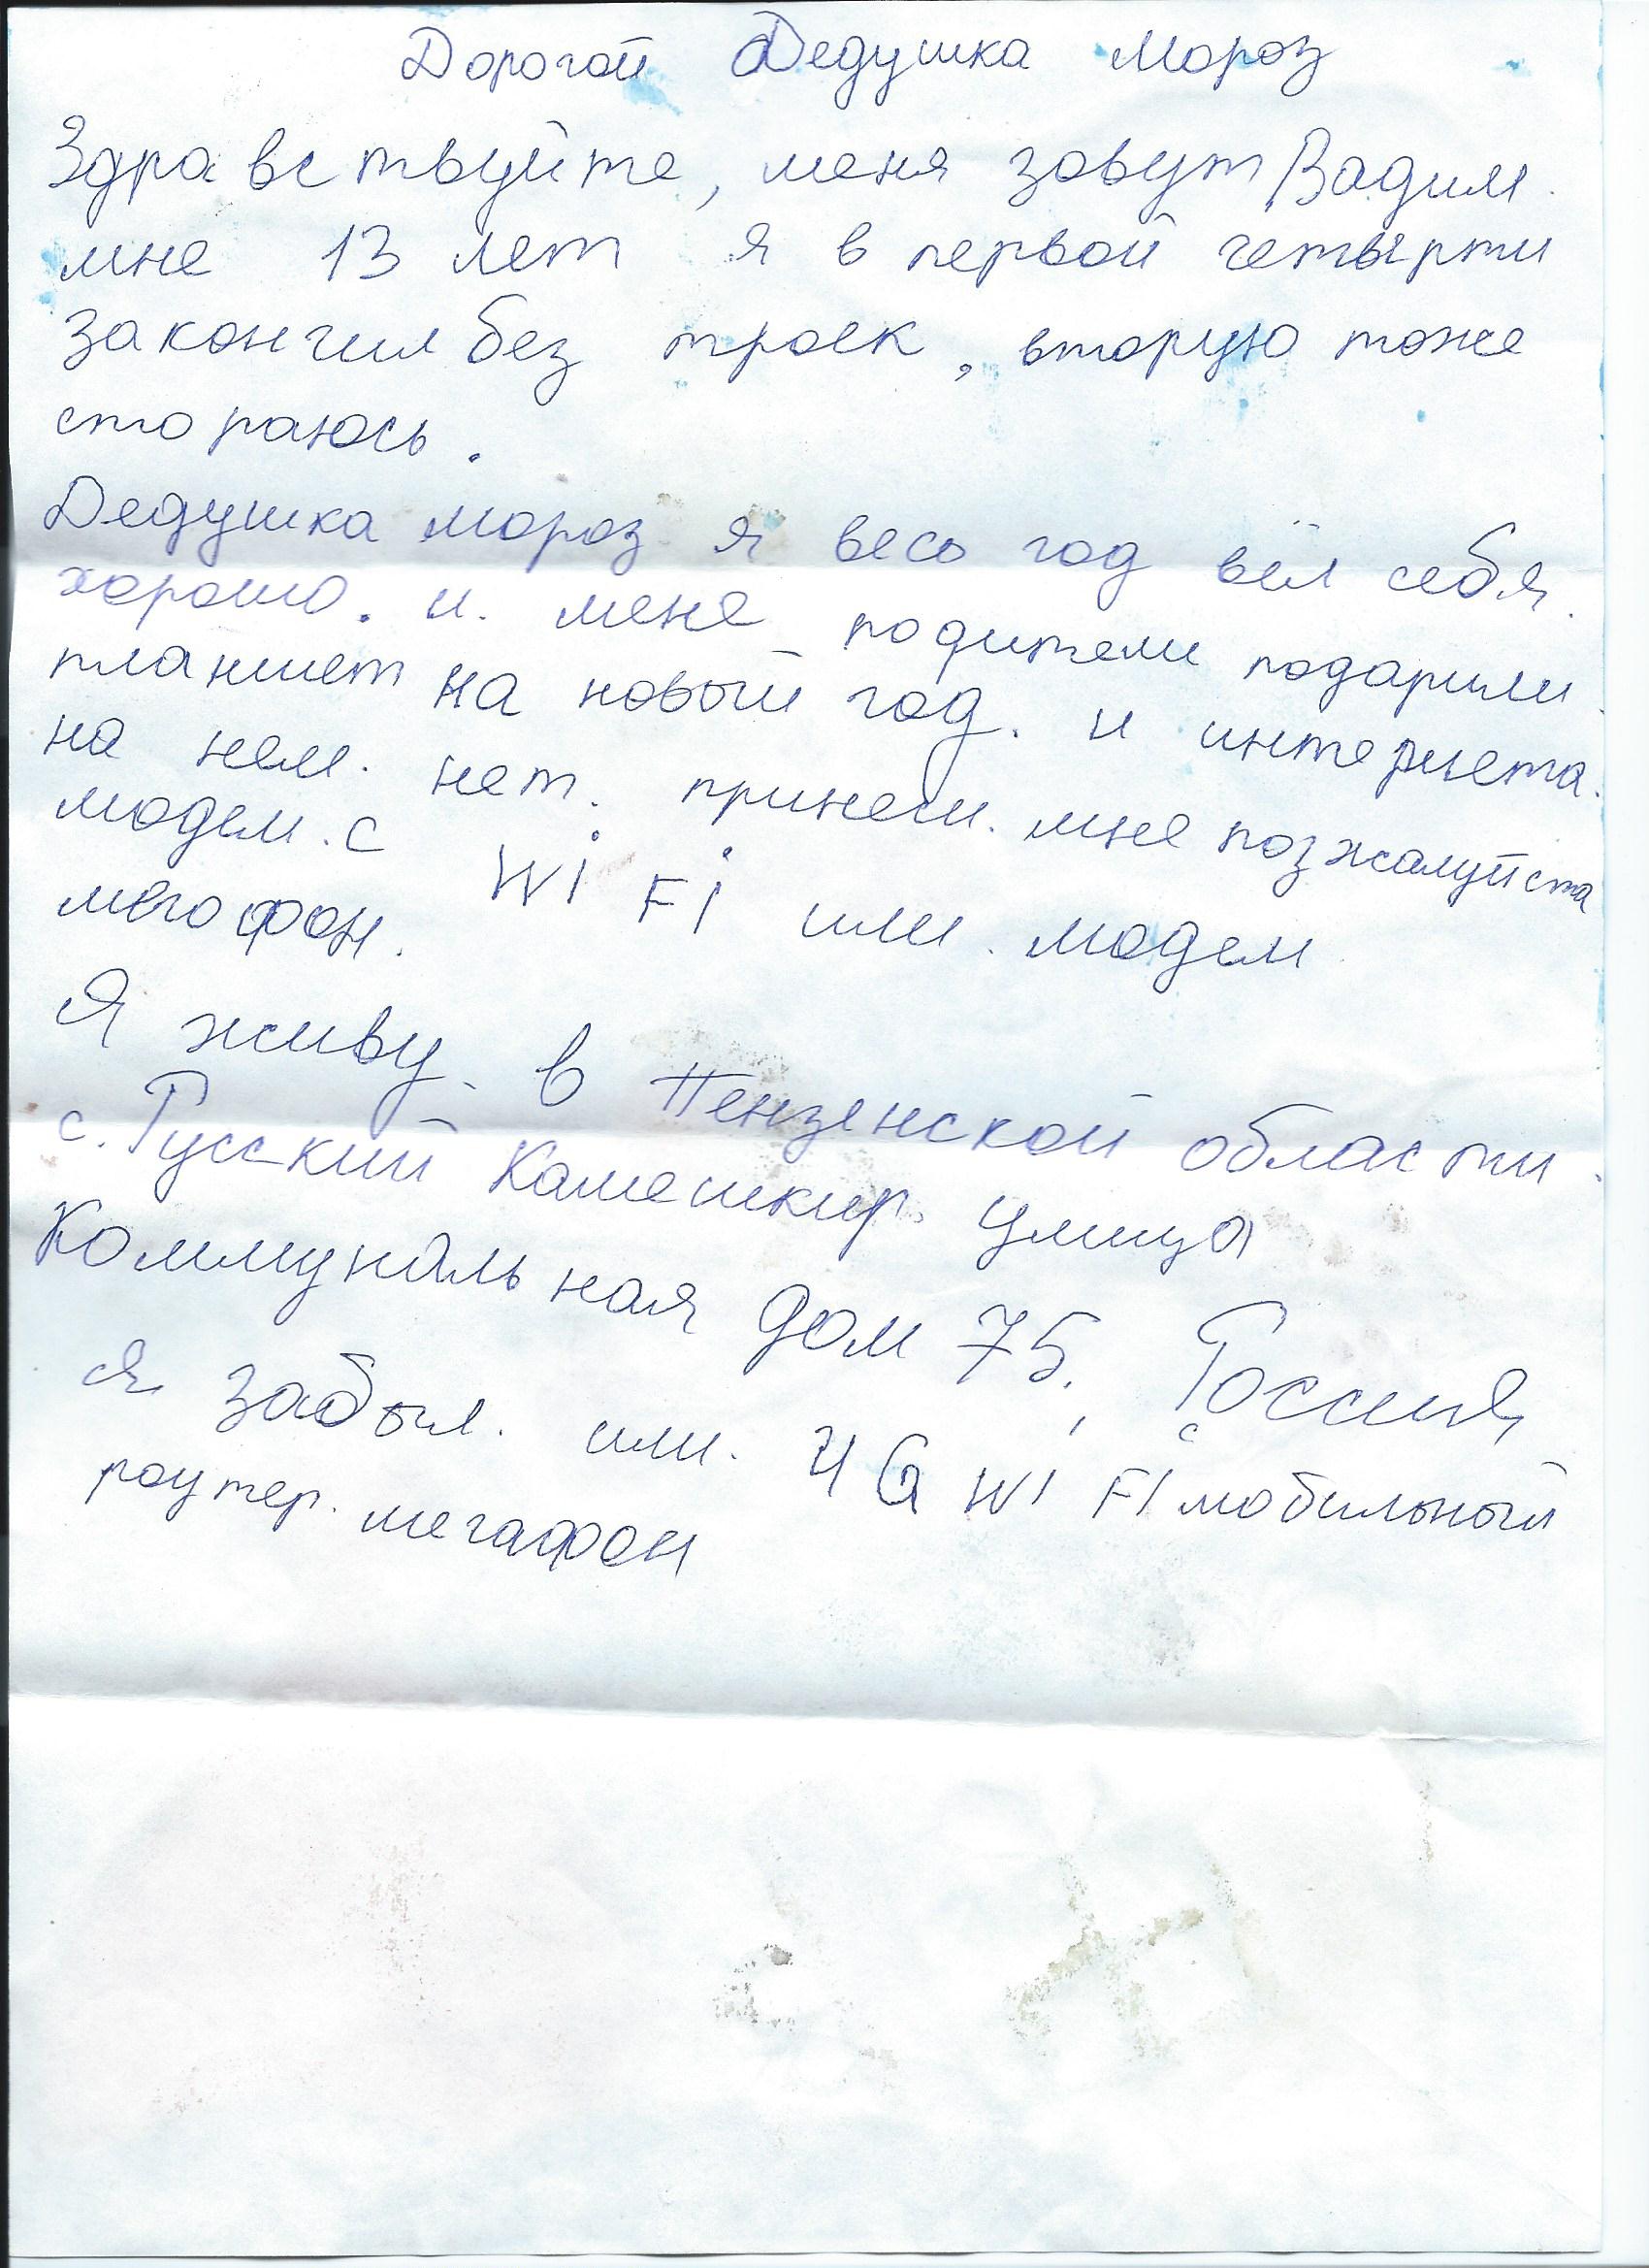 Дорогой Дедушка Мороз
Здравствуйте, меня зовут Вадим.
мне 13 лет я в первой четырти
закончил без троек, вторую тоже
стораюсь.
Дедушка мороз я весь год вёл себя.
хорошо. и. мене родители подарили
планшет на новый год. и интернета.
на нем. нет. принеси. мне позжалуйста
модем. с Wi Fi или. модем
мегофон.
Я живу. в Пензенской области.
с. Русский Камешкир. улица
Коммунальная дом 75, Россия
Я забыл. или. 4G с WI FI мобильный
роутер. мегафон